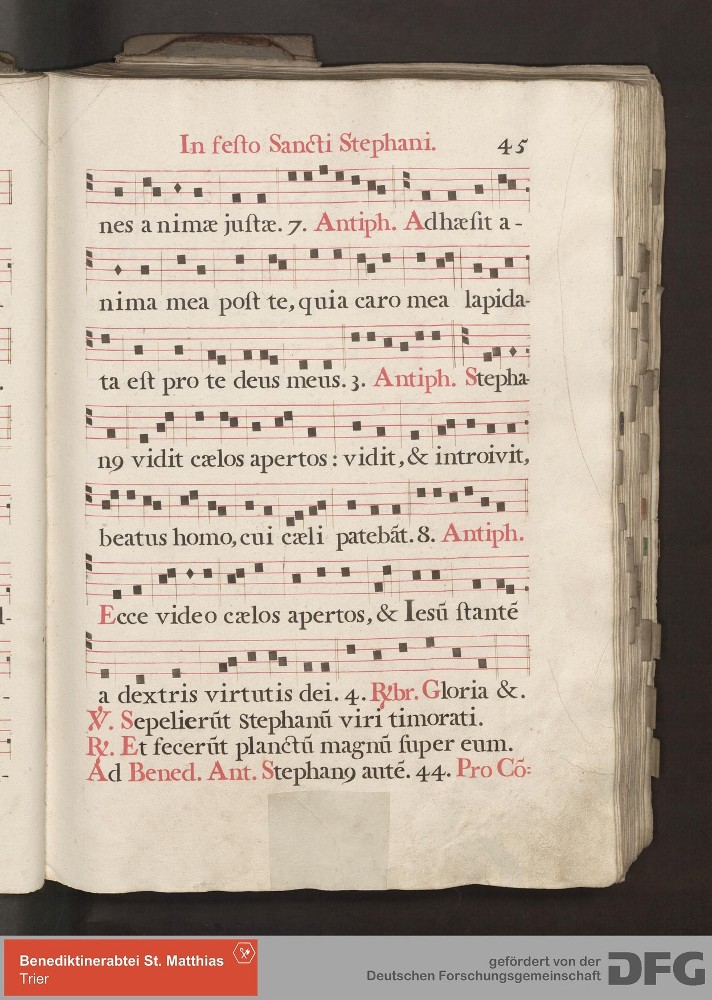 In feſto Sancti Stephani. 45
nes animæ juſtæ. 7. Antiph. Adhæſit a-
nima mea poſt te, quia caro mea lapida-
ta eſt pro te deus meus. 3. Antiph. Stepha-
nꝰ vidit cælos apertos: vidit, & introivit,
beatus homo, cui cæli patebāt. 8. Antiph.
Ecce video cælos apertos, & Iesū ſtantē
a dextris virtutis dei. 4. ℟br. Gloria &.
℣. Sepelierūt Stephanū viri timorati.
℟. Et fecerūt planctū magnū ſuper eum.
Ad Bened. Ant. Stephanꝰ autē. 44. Pro Cō:
Benediktinerabtei St. Matthias
Trier
gefördert von der
Deutschen Forschungsgemeinschaft
DFG